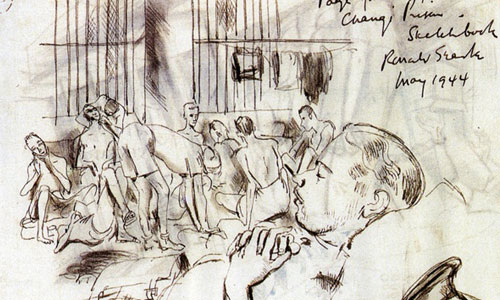 Page
Changi Prison
Sketchbook
Ronald Searle
May 1944